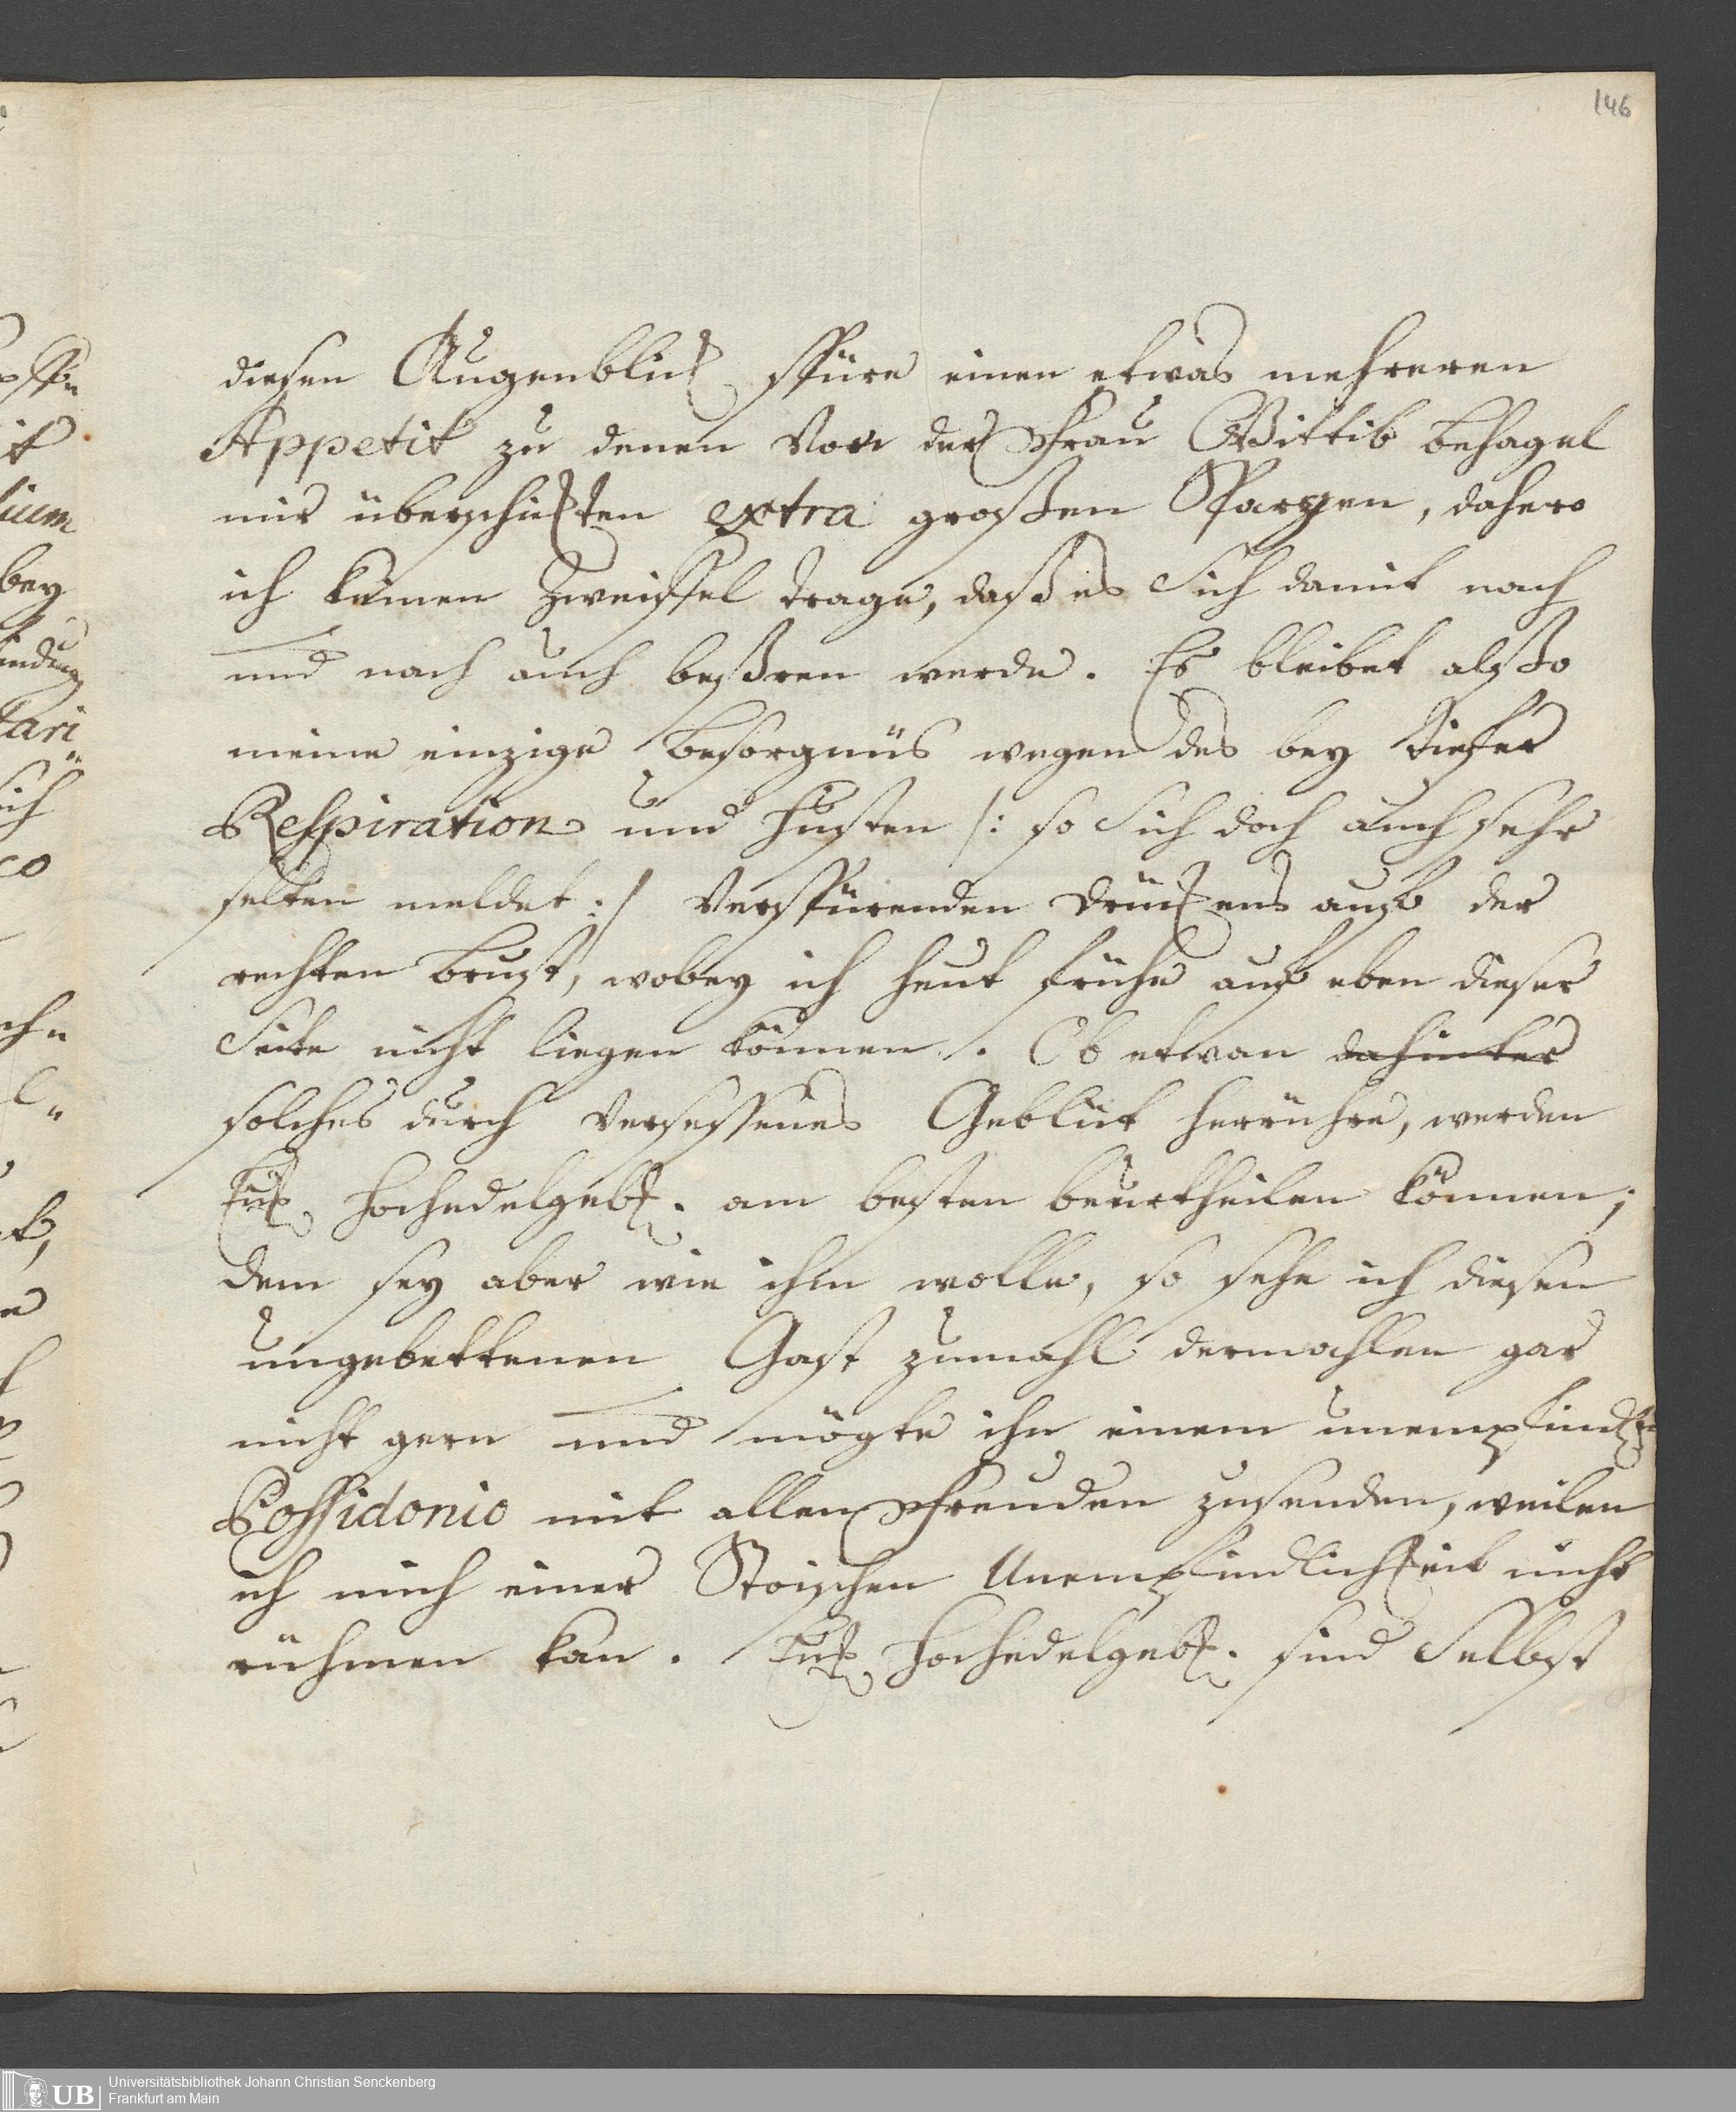 146
diesen Augenblick spüre einen etwas mehreren
Appetit zu denen von der Frau Wittib Behagel
mir überschickten extra großen Spargen, dahero
ich keinen Zweiffel trage, daß es Sich damit nach
und nach auch beßren werde. Es bleibet alßo
meine einzige Besorgnüs wegen des bey tiefer
Respiration und Husten /: so Sich doch auch sehr
selten meldet :/ verspürenden Drückens auf der
rechten Brust, wobey ich heut frühe auf eben dieser
Seite nicht liegen können. Ob etwan dahinter
solches durch versessenes Geblüt herrühre, werden
Ew. Hochedelgeb. am besten beurtheilen können;
dem sey aber wie ihm wolle, so sehe ich diesen
ungebettenen Gast zumahl dermahlen gar
nicht gern und mögte ihn einem unempfindl.
Possidonio mit allen Freuden zusenden, weilen
ich mich einer Stoischen Unempfindlichkeit nicht
rühmen kan. Ew. Hochedelgeb. sind Selbst
it
ium
bey
indung
tari
ich
co
UB
Universitätsbibliothek Johann Christian Senckenberg
Frankfurt am Main